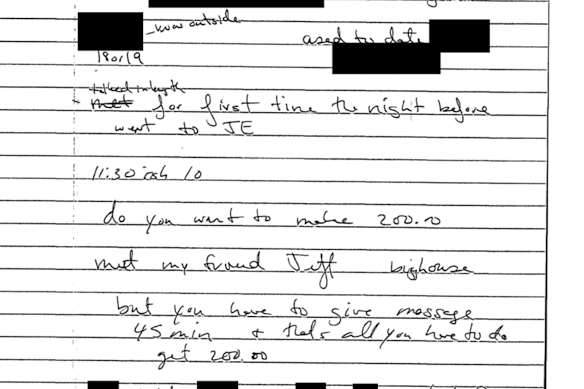 now outside
used to date
18 or 19
talked in length
met for first time the night before
went to JE
11:30 ish 10
do you want to make 200.00
met my friend Jeff big house
but you have to give message
45 min + that's all you have to do
get 200.00